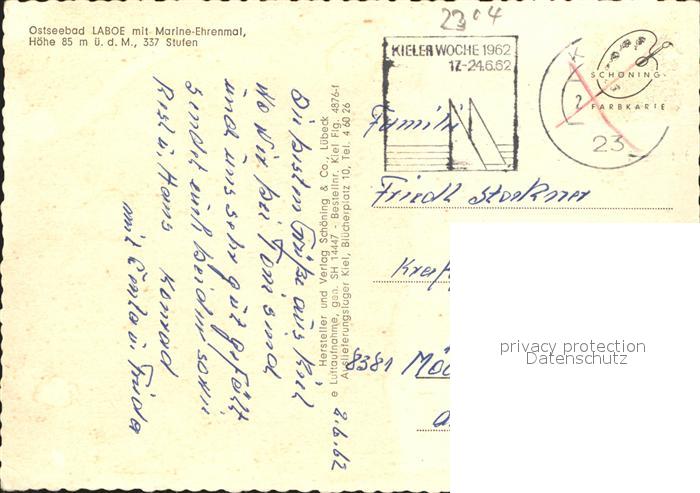 Ostseebad LABOE mit Marine-Ehrenmal,
Höhe 85 m ü. d. M., 337 Stufen
2304
KIELER WOCHE 1962
17.-24.6.62
SCHÖNING
FARBKARTE
23
Familie
Friedl
8381
Die besten Grüße aus Kiel
wo wir bei Toni sind
und uns sehr gut gefällt
sendet euch beiden sowie
Resl u. Hans Konrad
mit u. Frieda
2.6.62
Hersteller und Verlag Schöning & Co., Lübeck
Luftaufnahme, gen. SH 14447 - Bestellnr. Kiel Flg. 4876-f
Auslieferungslager Kiel, Blücherplatz 10, Tel. 4 60 26
privacy protection
Datenschutz